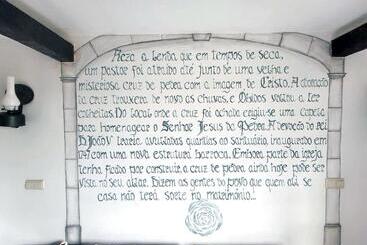 Reza a lenda que em tempos de seca,
um pastor foi atraído até junto de uma velha e
misteriosa cruz de pedra com a imagem de Cristo. A adoração
da cruz trouxera de novo as chuvas, e Óbidos voltou a ter
colheitas. No local onde a cruz foi achada erigiu-se uma capela
para homenagear o Senhor Jesus da Pedra. A devoção do rei
D. João V traria avultadas quantias ao santuário, inaugurado em
1747 com uma nova estrutura barroca. Embora parte da igreja
tenha ficado por construir, a cruz de pedra ainda hoje pode ser
vista no seu altar. Dizem as gentes do povo que quem ali se
casa não terá sorte no matrimónio!